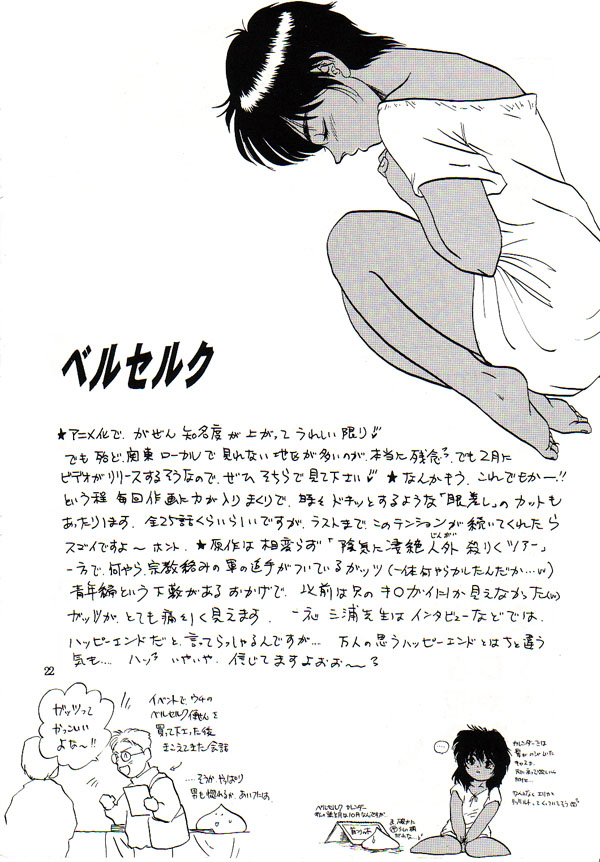 ベルセルク
★アニメ化で、がぜん 知名度が上がってうれしい限り♡
でも殆ど、関東ローカルで見れない地区が多いのが、本当に残念。でも2月に
ビデオがリリースするそうなので、ぜひ、そちらで見て下さい♡ ★なんかもう、これでもかー!!
という程 毎回作画に力が入りまくりで、時々ドキッとするような「眼差し」のカットも
あったります。全25話くらいらしいですが、ラストまで、このテンションが続いてくれたら
スゴイですよ〜 ホント。★原作は 相変らず「陰気に凄絶人外 殺りくツアー」
じんがい
一方で、何やら、宗教絡みの軍の追手がついているガッツ(一体何やらかしたんだか…)
青年編という下敷がある おかげで、以前は只の キ○ガイにしか見えなかった
ガッツが、とても痛々しく見えます。一応 三浦先生は インタビューなどでは、
ハッピーエンドだと、言ってらっしゃるんですが… 万人の思うハッピーエンドとはちと違う
気も… ハッ いやいや、信じてますよおお〜〜る
22
ガッツって
かっこいい
よな〜!!
イベントで、ウチの
ベルセルク便せんを
買って下さった後
きこえてきた会話
…そうか、やっぱり
男も惚れるか、あいつは。
…
カレンダーでは
ベルセルク カレンダー